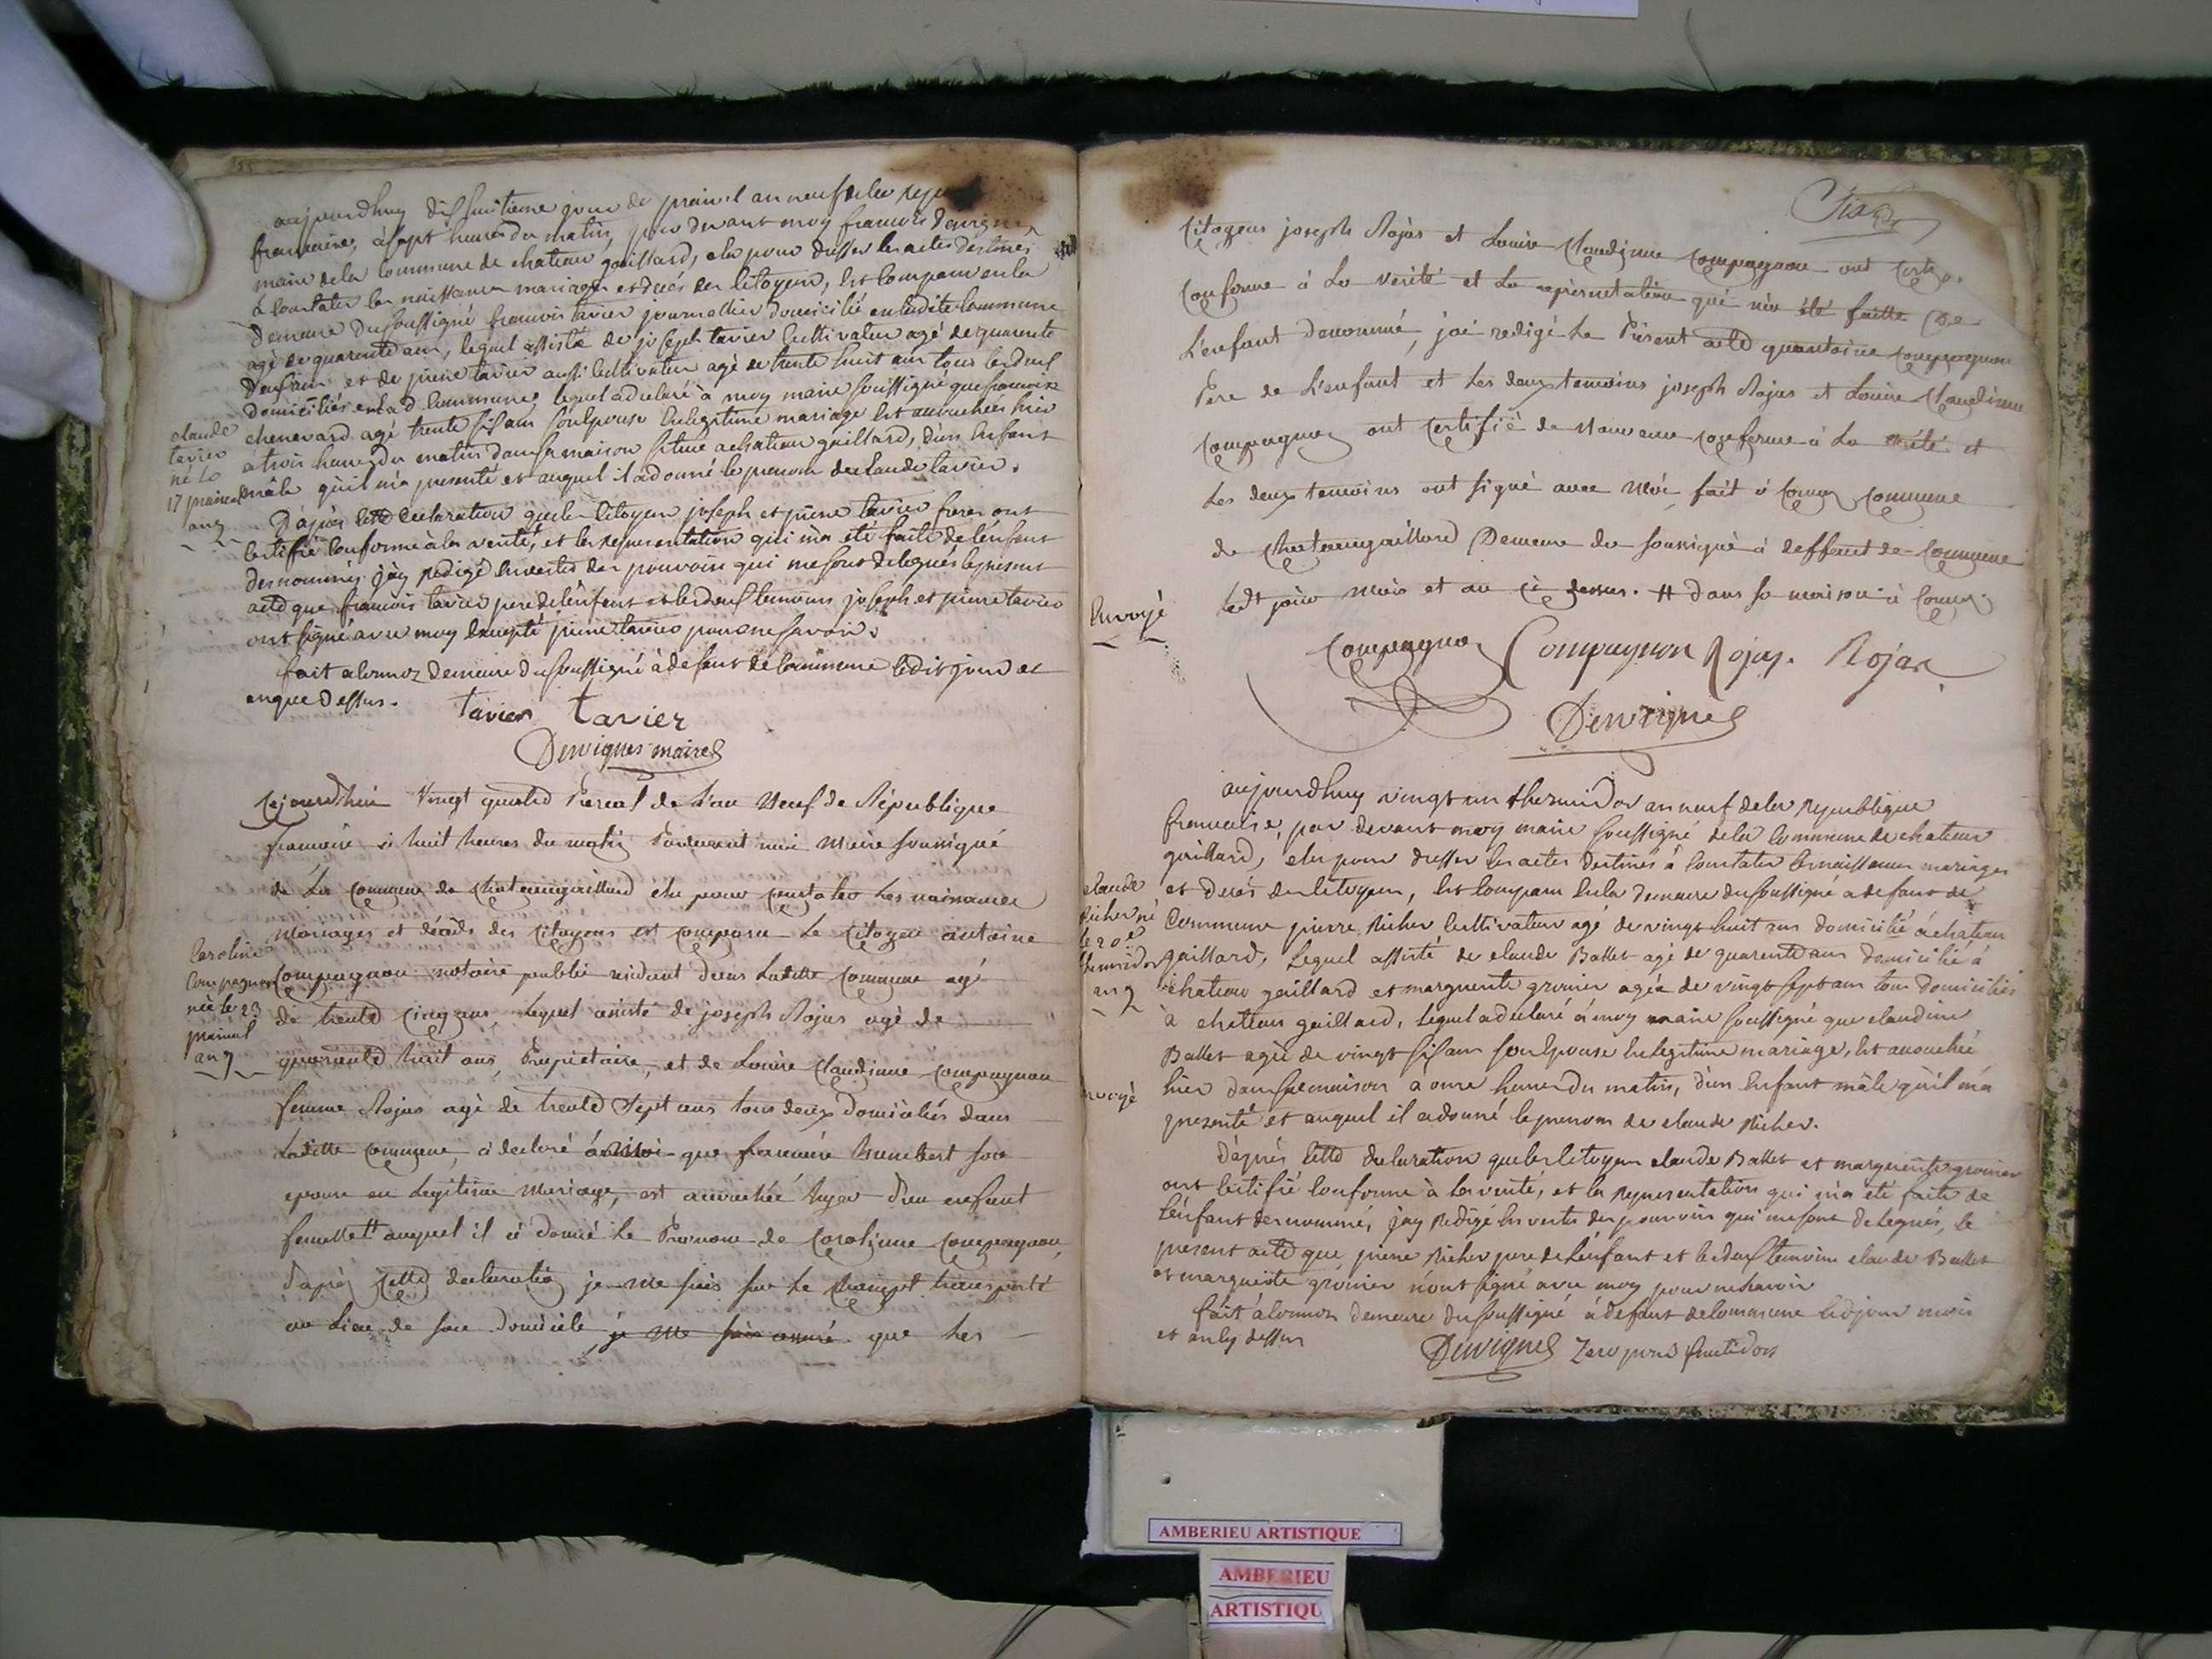 aujourdhuy dixhuitieme jour de prairial an neuf de la rep
francaise, à sept heures du matin, par devant moy francois Dervignes
maire de la commune de chateau gaillard, elu pour dresser les actes destinés
à constater les naissances mariages et decés des citoyens, est comparu en la
Demeure du soussigné francois tavier journallier domicilié en ladite commune
agé de quarente ans, lequel assisté de joseph tavier cultivateur agé de quarente
deux ans et de pierre tavier aussi cultivateur agé de trente huit ans tous les deux
domiciliés en lad. commune, lequel a declaré à moy maire soussigné que francoise
chenevard agé trente six ans son epouse en legitime mariage est accouchée hier
à trois heures du matin dans sa maison située a chateau gaillard, d'un enfant
mâle qu'il m'a presenté et auquel il a donné le prenom de claude tavier.
claude
tavier
né le
17 prairial
an 9
D'après cette declaration que les citoyens joseph et pierre tavier freres ont
certifié conforme à la verité, et la representation qui m'a été faite de l'enfant
denommé, j'ay redigé en vertu des pouvoirs qui me sont delegués le present
acte que francois tavier pere de l'enfant et les deux temoins joseph et pierre tavier
ont signé avec moy excepté pierre tavier pour ne savoir.
fait a cormoz demeure du soussigné à defaut de commune ledit jour et
an que dessus.
tavier tavier
Dervignes maire
Cejourd'hui vingt quatre Prereal de l'an neuf de République
francaise à huit heures du matin Pardevant moi Maire soussigné
de La Commune de Chateaugaillard elu pour constater les naissances
Mariages et décéds des Citoyens est comparu le Citoyen antoine
Compagnon notaire public résidant dans Laditte Commune agé
de trente cinq ans, Lequel assisté de joseph Rojas agé de
quarante huit ans, Propriétaire, et de Louise Claudinne Compagnon
femme Rojas agé de trente sept ans tous deux Domiciliés dans
Laditte Commune, a declaré à moi que francoise humbert son
epouse en Legitime Mariage, est accouchée hyer d'un enfant
femelle auquel il a donné le Prénom de Carolinne Compagnon,
d'après cette declaration je me suis sur le champt transporté
au Lieu de son Domicile je me suis assuré que les
Caroline
Compagnon
née le 23
prairial
an 9
Citoyens joseph Rojas et Louise Claudinne Compagnon ont certifié
Conforme à La verité et La représentation qui m'a été faitte De
L'enfant denommé, j'ai redigé Le Présent acte qu'antoine Compagnon
Pere de L'enfant et Les deux temoins joseph Rojas et Louise Claudinne
Compagnon ont certifié de Nouveau conforme à La vérité et
Les deux temoins ont signé avec Moi, fait à Cormoz Commune
de Chateaugaillard Demeure du soussigné à deffaut de Commune
Ledt jour Mois et an ci dessus. # dans sa maison à Cormoz
Envoyé
Compagnon Compagnon Rojas. Rojas
Dervignes
aujourdhuy vingt un thermidor an neuf de la republique
francaise, par devant moy maire soussigné de la commune de chateau
gaillard, elu pour dresser les actes destinés à constater les naissances mariages
et decés des citoyens, est comparu en la demeure du soussigné a defaut de
Commune pierre Richer cultivateur agé de vingt huit ans domicilié à chateau
gaillard, Lequel assisté de claude Ballet agé de quarente ans domicilié à
chateau gaillard et marguerite groinier agée de vingt sept ans tous domiciliés
à chateau gaillard, lequel a declaré à moy maire soussigné que claudine
Ballet agée de vingt six ans son epouse en legitime mariage, est accouchée
hier dans sa maison a onze heures du matin, d'un enfant mâle qu'il m'a
presenté et auquel il a donné le prenom de claude Richer.
claude
Richer né
le 20e
thermidor
an 9
envoyé
D'après cette declaration que les citoyens claude Ballet et marguerite groinier
ont certifié conforme à la verité, et la representation qui m'a été faite de
l'enfant denommé, j'ay redigé en vertu des pouvoirs qui me sont delegués, le
present acte que pierre Richer pere de l'enfant et les deux temoins claude Ballet
et marguerite groinier n'ont signé avec moy pour ne savoir
fait à cormoz demeure du soussigné à defaut de commune led jour mois
et an cy dessus
Dervignes Zero pour fructidor
AMBERIEU ARTISTIQUE
AMBERIEU
ARTISTIQU